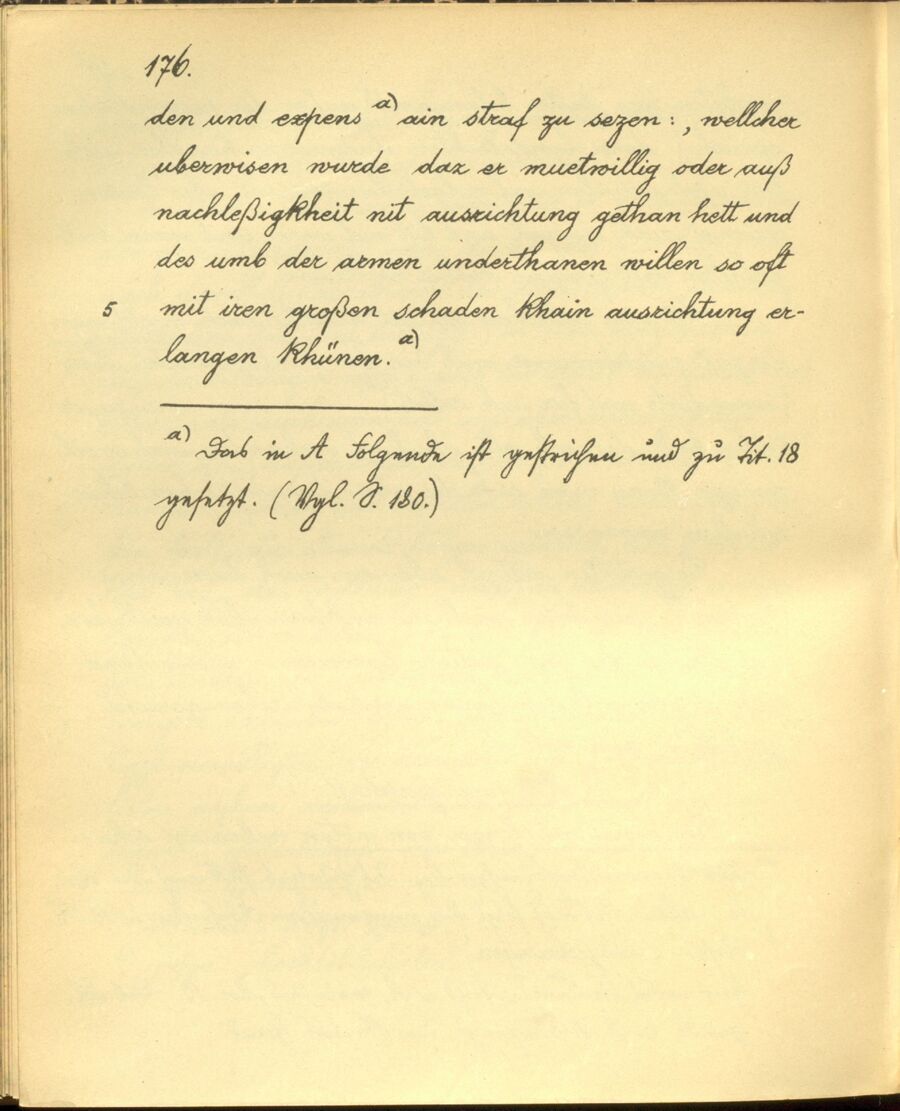 176.
den und expens a) ain straf zu sezen :, wellcher
uberwisen wurde daz er muetwillig oder auß
nachleßigkheit nit ausrichtung gethan hett und
des umb der armen underthanen willen so oft
5 mit iren großen schaden khain ausrichtung er-
langen khünen. a)
a) Das in A Folgende ist gestrichen und zu Tit. 18
gesetzt. (Vgl. S. 180.)